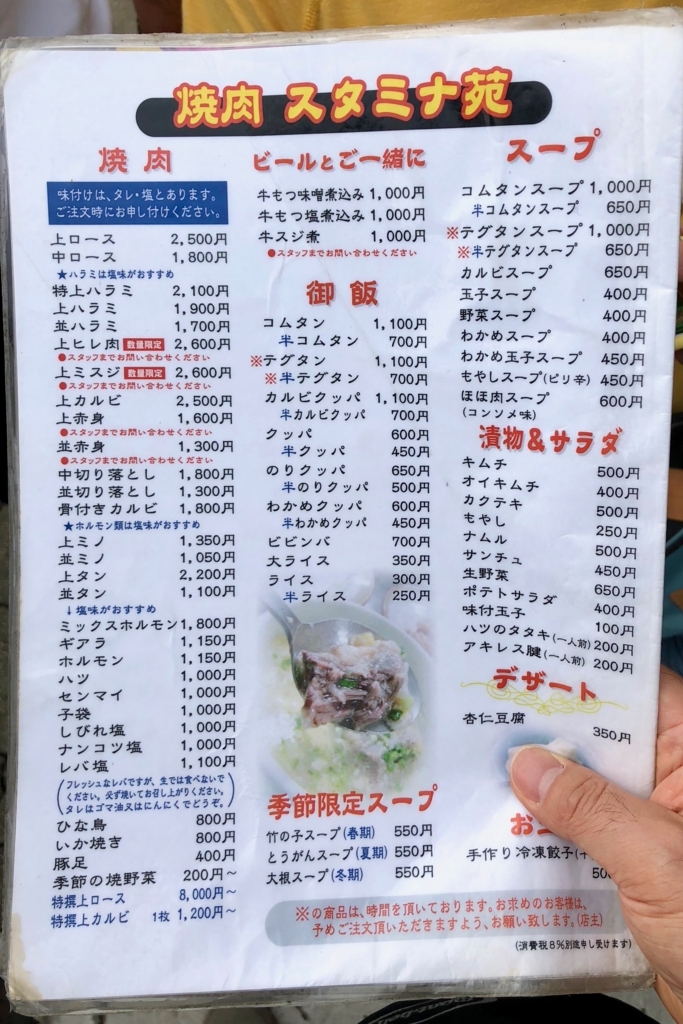 焼肉 スタミナ苑
焼肉
味付けは、タレ・塩とあります。
ご注文時にお申し付けください。
上ロース 2,500円
中ロース 1,800円
★ハラミは塩味がおすすめ
特上ハラミ 2,100円
上ハラミ 1,900円
並ハラミ 1,700円
上ヒレ肉 数量限定 2,600円
●スタッフまでお問い合わせください
上ミスジ 数量限定 2,600円
●スタッフまでお問い合わせください
上カルビ 2,500円
上赤身 1,600円
●スタッフまでお問い合わせください
並赤身 1,300円
●スタッフまでお問い合わせください
中切り落とし 1,800円
並切り落とし 1,300円
骨付きカルビ 1,800円
★ホルモン類は塩味がおすすめ
上ミノ 1,350円
並ミノ 1,050円
上タン 2,200円
並タン 1,100円
↓塩味がおすすめ
ミックスホルモン 1,800円
ギアラ 1,150円
ホルモン 1,150円
ハツ 1,000円
センマイ 1,000円
子袋 1,000円
しびれ塩 1,000円
ナンコツ塩 1,000円
レバ塩 1,100円
(フレッシュなレバですが、生では食べないで
ください。必ず焼いてお召し上がりください。
タレはゴマ油又はにんにくでどうぞ。)
ひな鳥 800円
いか焼き 800円
豚足 400円
季節の焼野菜 200円～
特撰上ロース 8,000円～
特撰上カルビ 1枚 1,200円～
ビールとご一緒に
牛もつ味噌煮込み 1,000円
牛もつ塩煮込み 1,000円
牛スジ煮 1,000円
●スタッフまでお問い合わせください
御飯
コムタン 1,100円
半コムタン 700円
※テグタン 1,100円
※半テグタン 700円
カルビクッパ 1,100円
半カルビクッパ 700円
クッパ 600円
半クッパ 450円
のりクッパ 650円
半のりクッパ 500円
わかめクッパ 600円
半わかめクッパ 450円
ビビンバ 700円
大ライス 350円
ライス 300円
半ライス 250円
季節限定スープ
竹の子スープ(春期) 550円
とうがんスープ(夏期) 550円
大根スープ(冬期) 550円
スープ
コムタンスープ 1,000円
半コムタンスープ 650円
※テグタンスープ 1,000円
※半テグタンスープ 650円
カルビスープ 650円
玉子スープ 400円
野菜スープ 400円
わかめスープ 400円
わかめ玉子スープ 450円
もやしスープ(ピリ辛) 450円
ほほ肉スープ 600円
(コンソメ味)
漬物&サラダ
キムチ 500円
オイキムチ 400円
カクテキ 500円
もやし 250円
ナムル 500円
サンチュ 450円
生野菜 650円
ポテトサラダ 400円
味付玉子 100円
ハツのタタキ(一人前) 200円
アキレス腱(一人前) 200円
デザート
杏仁豆腐 350円
お
手作り冷凍餃子(
50
※の商品は、時間を頂いております。お求めのお客様は、
予めご注文頂いただきますよう、お願い致します。(店主)
(消費税8%別途申し受けます)